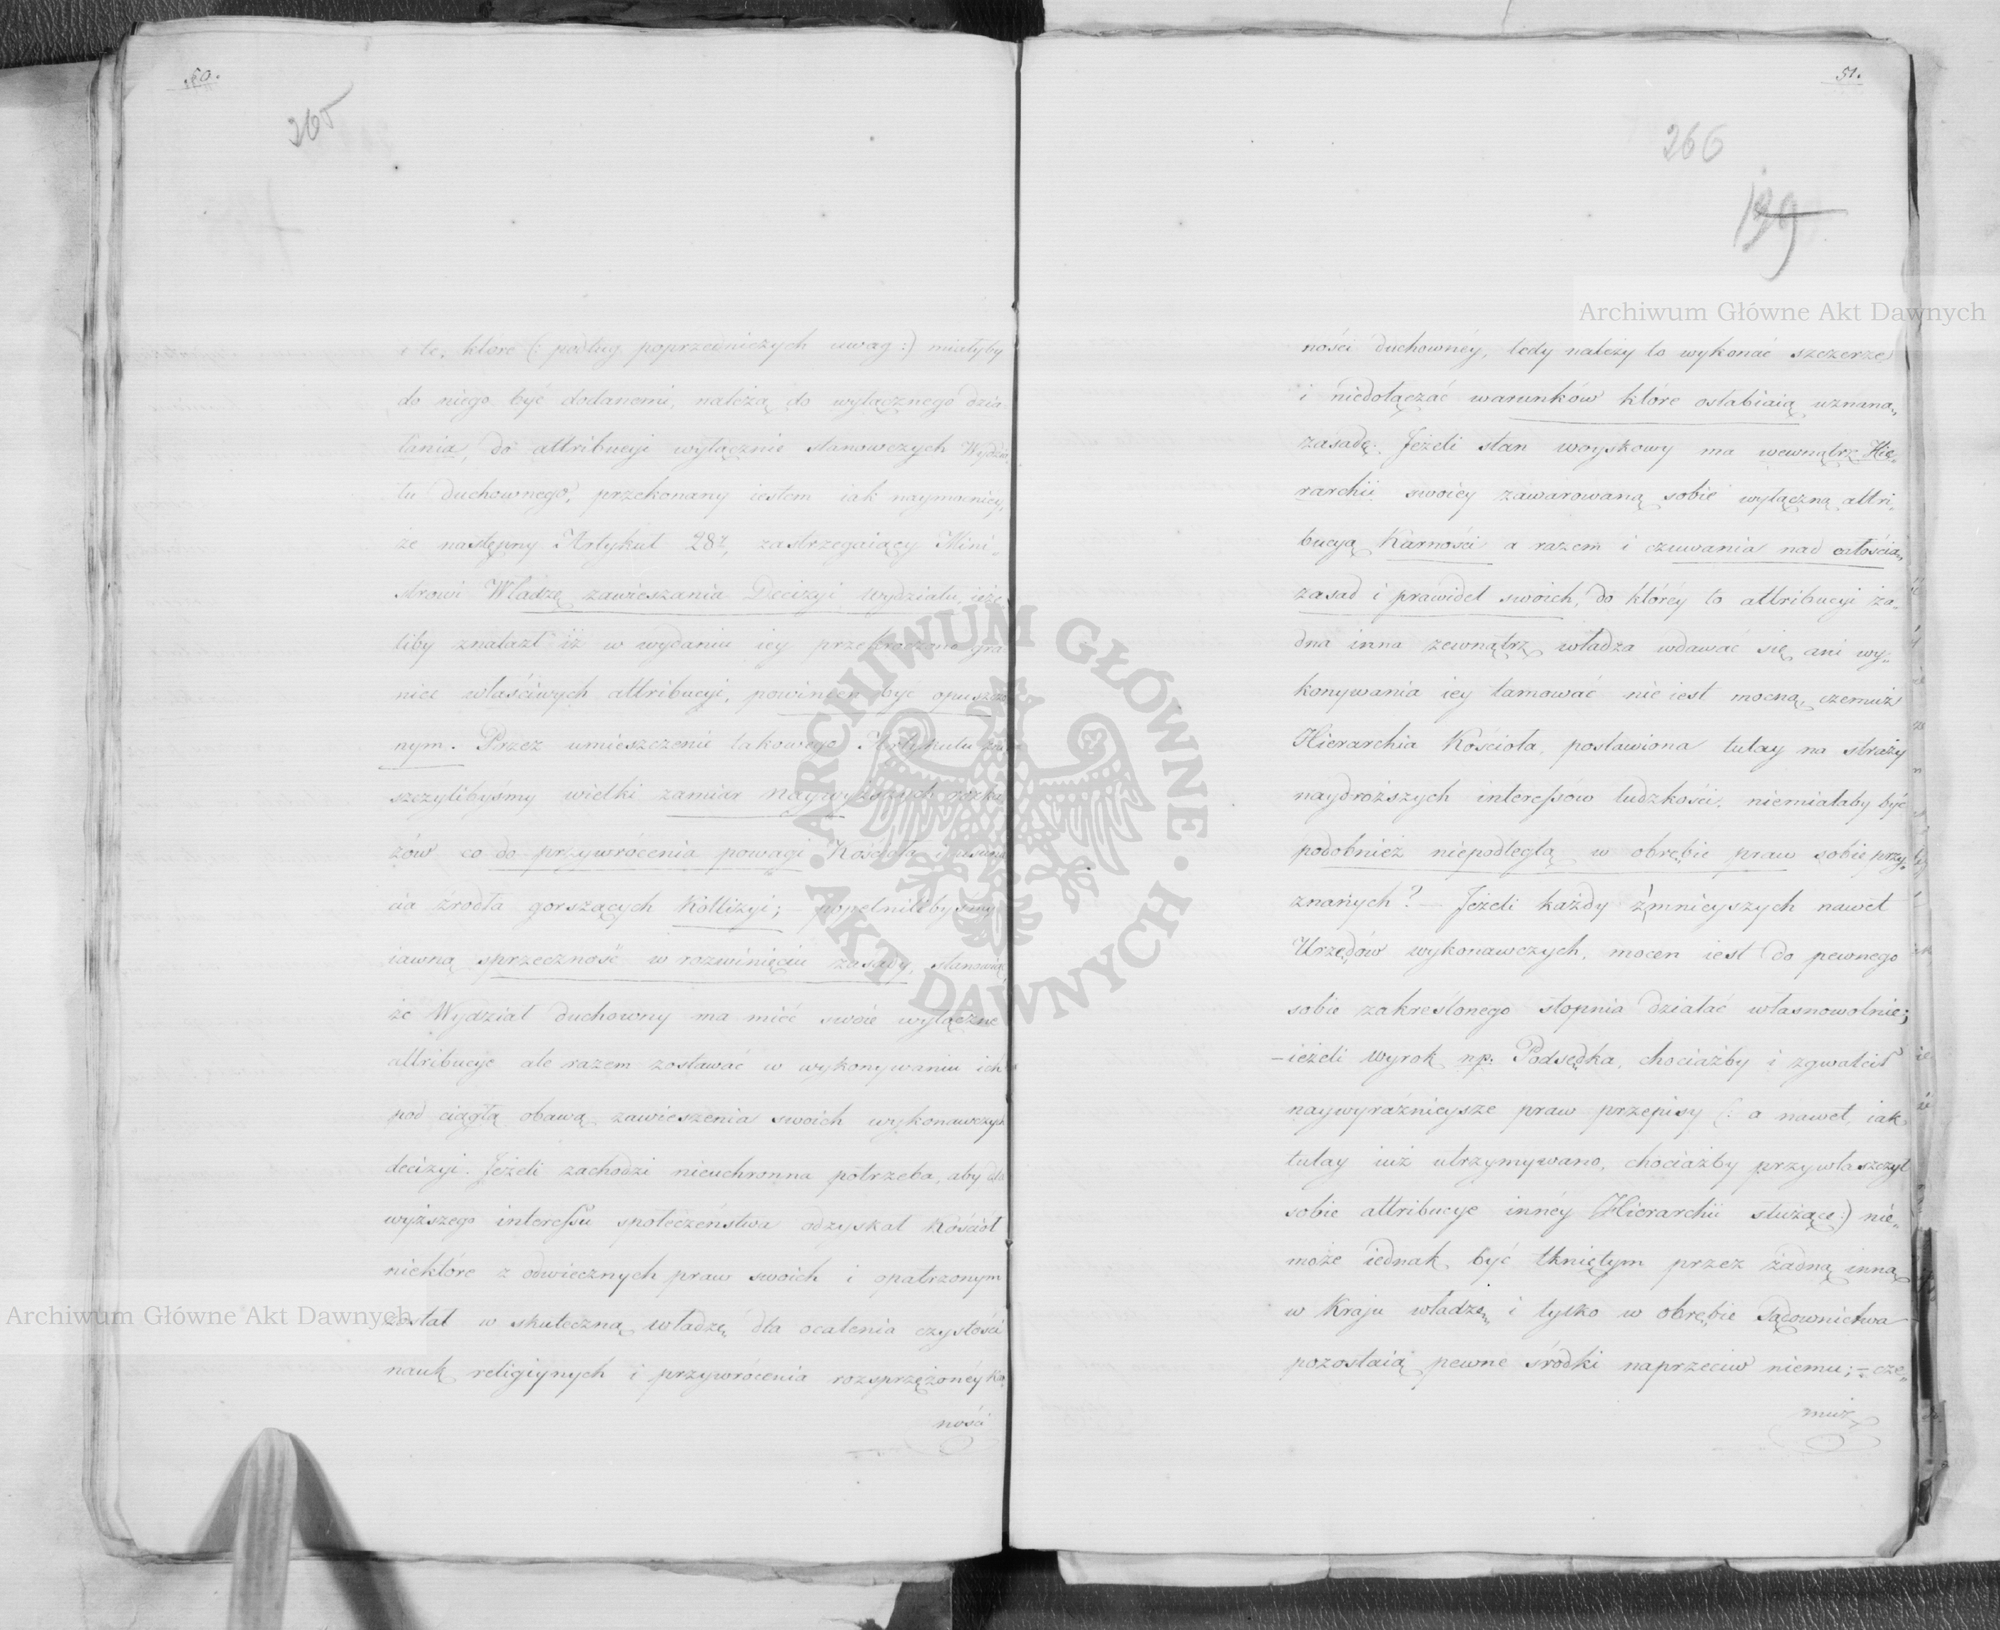 50.
265
i te, które (: podług poprzedniczych uwag :) miałyby
do niego być dodanemi, należą do wyłącznego dzia
łania, do attribucyi wyłącznie stanowczych Wydzia
łu duchownego, przekonany iestem iak naymocniey,
że następny Artykuł 28y, zastrzegaiący Mini-
strowi Władzę zawieszania Decizyi wydziału, ieże
liby znalazł iż w wydaniu iey przekroczono gra
nice właściwych attribucyi, powinien być opuszczo
nym. Przez umieszczenie takowego Artykułu zni
szczylibyśmy wielki zamiar Naywyższych rozka
zów co do przywrócenia powagi Kościoła i usunię
cia źrodła gorszących Kollizyi; popełnilibyśmy
iawną sprzeczność w rozwinięciu zasady, stanowiąc
że Wydział duchowny ma mieć swoie wyłączne
attribucye ale razem zostawać w wykonywaniu ich
pod ciągłą obawą zawieszenia swoich wykonawczych
decizyi. Jeżeli zachodzi nieuchronna potrzeba, aby dla
wyższego interessu społeczeństwa odzyskał Kościół
niektóre z odwiecznych praw swoich i opatrzonym
został w skuteczną władzę, dla ocalenia czystości
nauk religiynych i przywrócenia rozsprzężonéy kar
ności
51.
266
139
ności duchownéy, tedy należy to wykonać szczerze
i niedołączać warunków które osłabiaią uznaną
zasadę. Jeżeli stan woyskowy ma wewnątrz Hie-
rarchii swoiey zawarowaną sobie wyłączną attri-
bucyą Karności a razem i czuwania nad całością
zasad i prawideł swoich, do któréy to attribucyi ża-
dna inna zewnątrz władza wdawać się ani wy-
konywania iey tamować nie iest mocną, czemuż
Hierarchia Kościoła, postawiona tutay na straży
naydroższych interessow ludzkości, niemiałaby być
podobnież niepodległą w obrębie praw sobie przy-
znanych? — Jeżeli każdy z mnieyszych nawet
Urzędów wykonawczych, mocen iest do pewnego
sobie zakreślonego stopnia działać własnowolnie;
— ieżeli wyrok np. Podsędka, chociażby i zgwałcił
naywyraźnieysze praw przepisy (: a nawet, iak
tutay iuż utrzymywano, chociażby przywłaszczył
sobie attribucye innéy Hierarchii służące :) nie-
może iednak być tkniętym przez żadną inną
w Kraju władzę, i tylko w obrębie Sądownictwa
pozostaią pewne środki naprzeciw niemu; — cze-
muż
Archiwum Główne Akt Dawnych
Archiwum Główne Akt Dawnych
ARCHIWUM GŁÓWNE AKT DAWNYCH